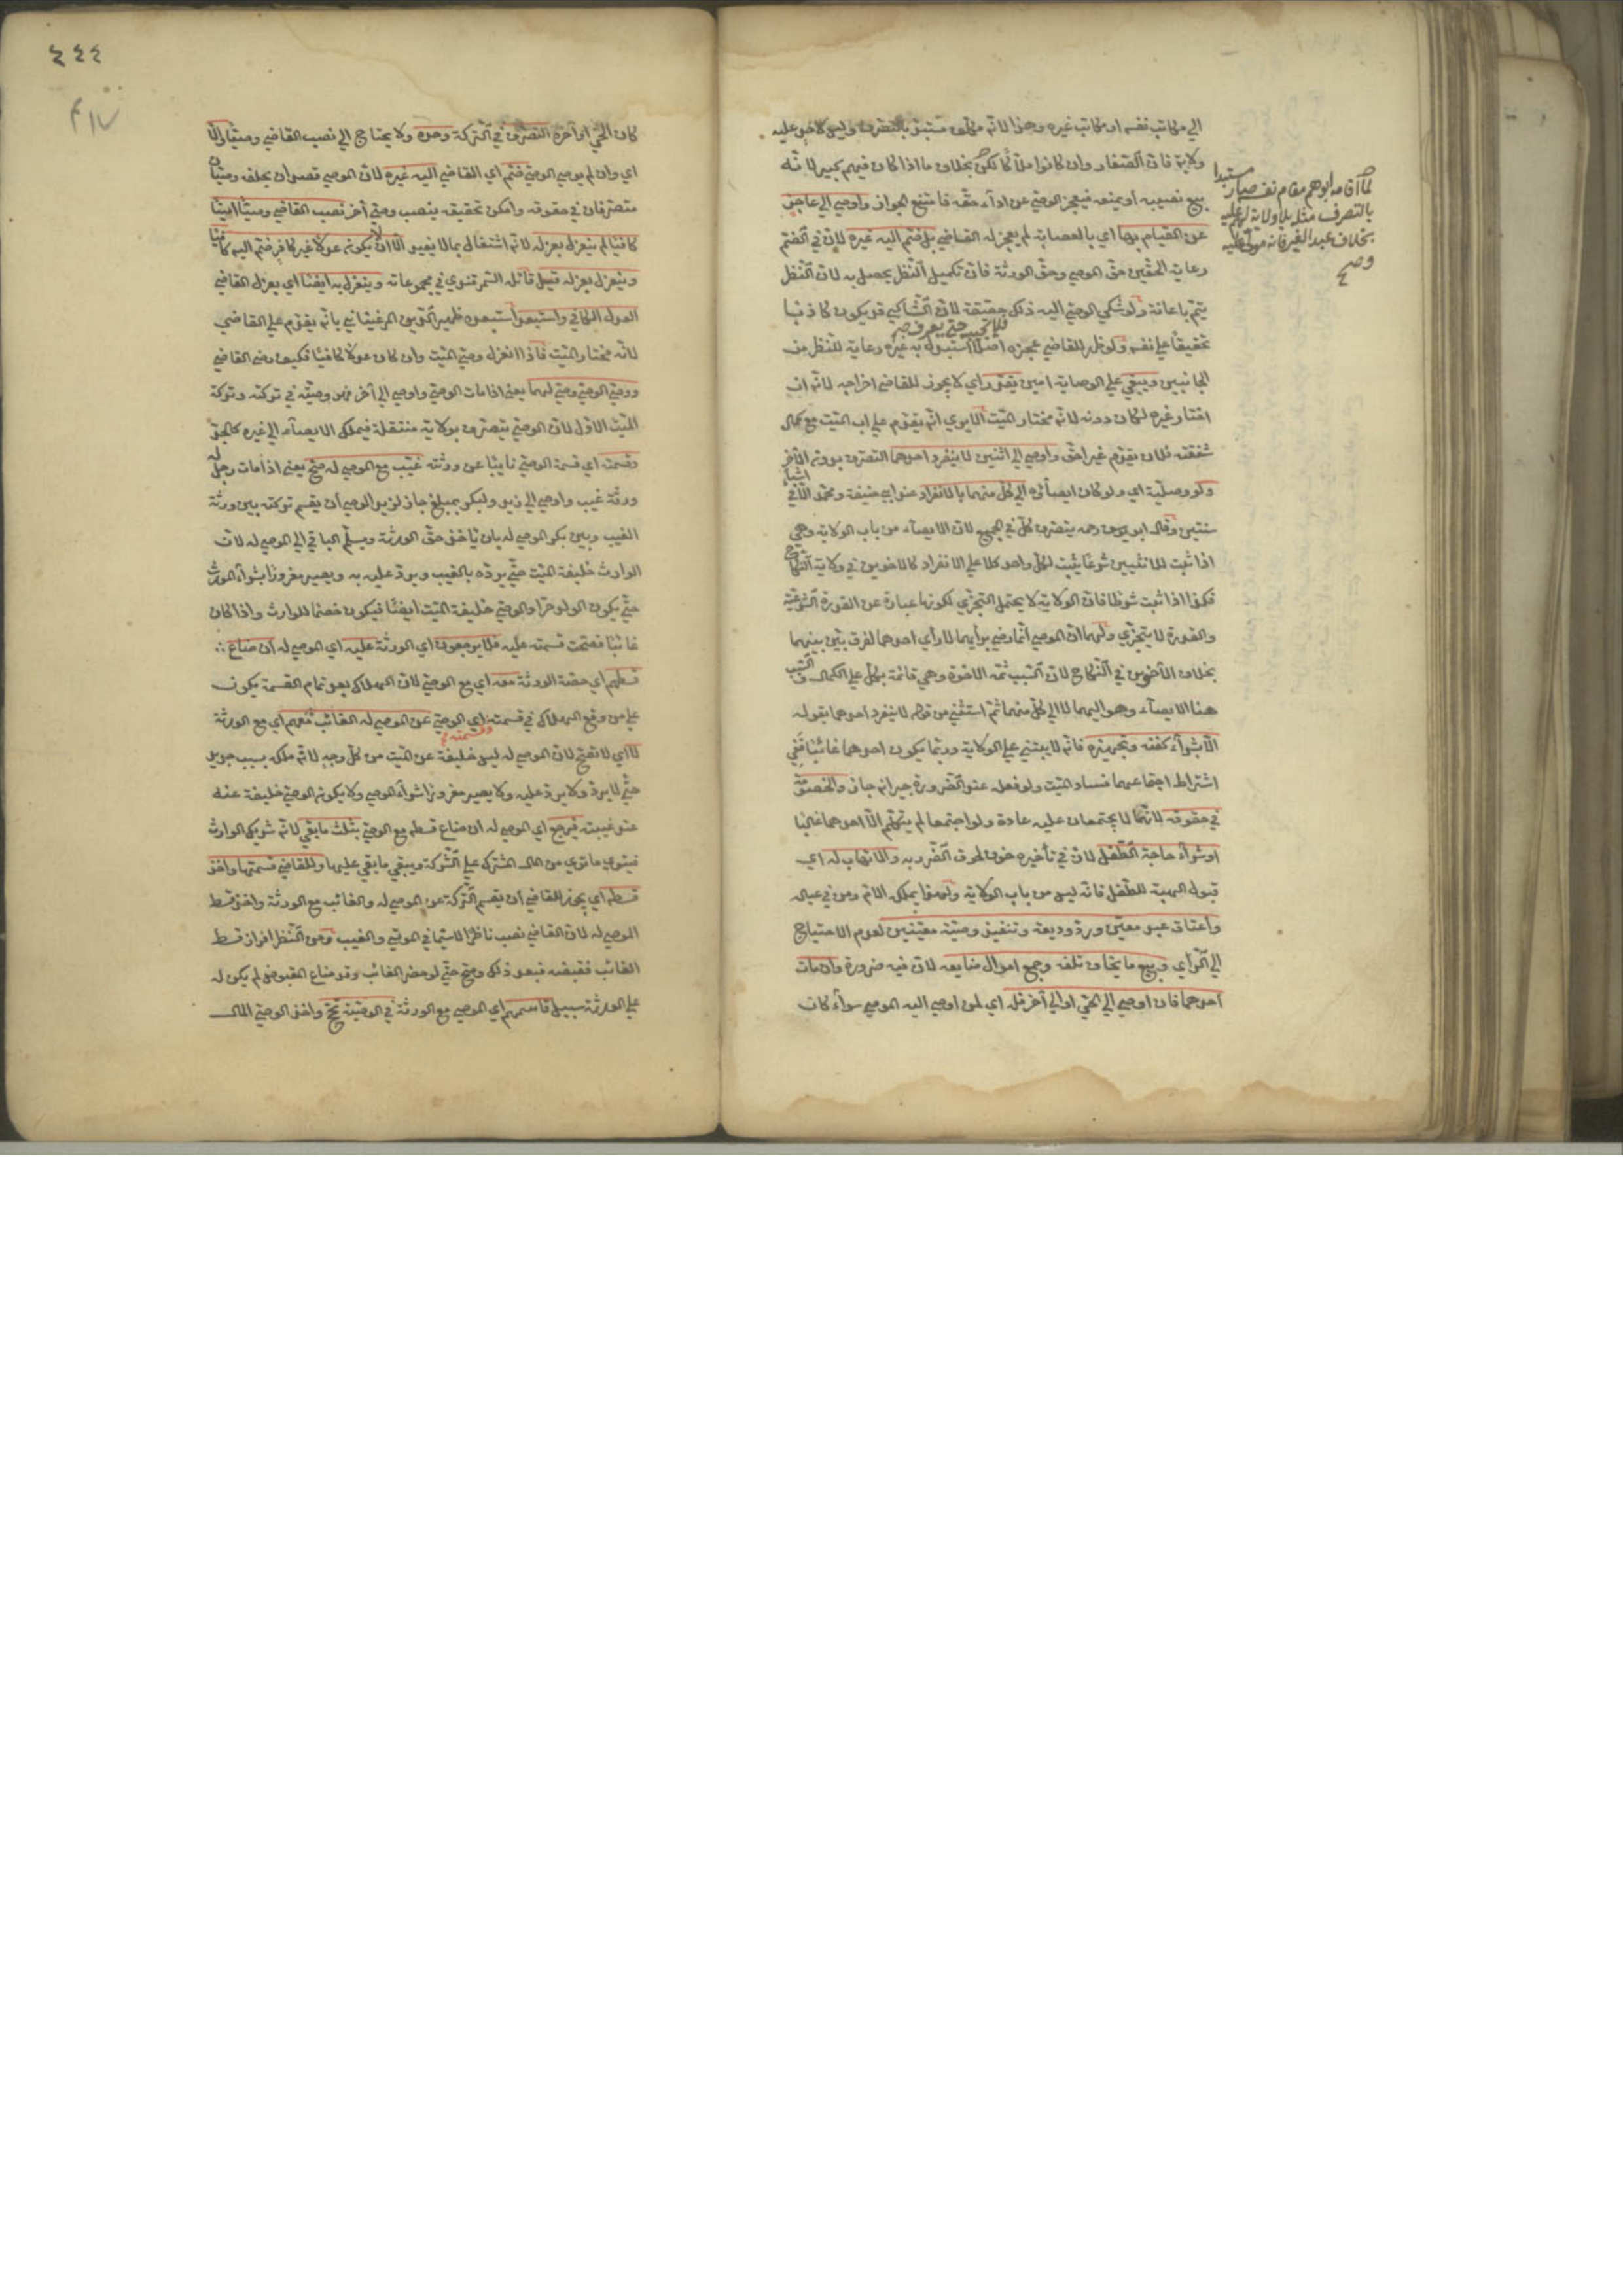 الي مكاتب نفسه او مكاتب غيره وهذا لانه مكلف مستبد بالتصرف وليس لاحد عليه
ولاية فان الصغار وان كانوا ملاكا لكن بخلاف ما اذا كان فيهم كبير لانه
بيع نصيبه او يمنعه فيعجز الوصي عن اداء حقه فامتنع الجواز واوصي الي عاجز
عن القيام بها اي بالوصاية لم يعزله القاضي بل ضم اليه غيره لان في الضم
رعاية الحقين حق الموصي وحق الورثة فان تكميل النظر يحصل به لان النظر
يتم باعانة ولو شكي الوصي اليه ذلك حقيقة لان الشاكي قد يكون كاذبا
فلا يجيبه حتي يعرف
تخفيفا علي نفسه ولو ظهر للقاضي عجزه اصلا استبدل به غيره رعاية للنظر من
الجانبين ويبقي علي الوصاية امين يقدر اي لا يجوز للقاضي اخراجه لانه ان
اختار غيره لكان دونه لانه مختار الميت الا يري انه يقدم علي اب الميت مع كمال
شفقته فلان يقدم غير احق واوصي الي اثنين لا ينفرد احدهما التصرف بدون الآخر
اشياء
ولو وصلية اي ولو كان ايصاؤه الي كل منهما بالانفراد عند ابي حنيفة ومحمد الا في
ستبين وقال ابو يوسف رحمه يتصرف كل في الجميع لان الايصاء من باب الولاية وهي
اذا ثبت للاثنين شرعا يثبت لكل واحد كملا علي الانفراد كالاخوين في ولاية النكاح
فكذا اذا ثبت شرطا فان الولاية لا يحتمل التجزي لكونها عبارة عن القدرة الشرعية
والقدرة لا يتجزي ولهما ان الموصي انما رضي برأيهما لا رأي احدهما لفرق بين بينهما
بخلاف الاخوين في النكاح لان السبب ثمه الاخوة وهي قائمة بكل علي الكمال والسبب
هنا الايصاء وهو اليهما لا الي كل منهما ثم استثني من قوله لا ينفرد احدهما بقوله
الا بشراء كفنه وتجهيزه فانه لا يبتني علي الولاية وربما يكون احدهما غائبا ففي
اشتراط اجتماعهما فساد الميت ولو فعله عند الضرورة جيرانه جاز والخصومة
في حقوقه لانهما لا يجتمعان عليه عادة ولو اجتمعا لم يتكلم الا احدهما غالبا
او شراء حاجة الطفل لان في تأخيره خوف لحوق الضرر به والاتهاب له اي
قبول الهبة للطفل فانه ليس من باب الولاية ولهذا يملكه الام ومن في عياله
واعتاق عبد معين ورد وديعة وتنفيذ وصية معينتين لعدم الاحتياج
الي الرأي وبيع ما يخاف تلفه وجمع اموال ضايعه لان فيه ضرورة وان مات
احدهما فان اوصي الي الحي او الي آخر فله اي لمن اوصي اليه الموصي سواء كان
لما اقامه ابوهم مقام نفسه صار مستبدا
بالتصرف مثله بلا ولاية لهم عليه
بخلاف عبد الغير فانه مولي عليه
صح
٤٤٤
٢١٧
كان الحي او آخره التصرف في التركة وحده ولا يحتاج الي نصب القاضي وصيا والا
اي وان لم يوص الوصي ضم اي القاضي اليه غيره لان الموصي قصد ان يخلفه وصيان
متصرفان في حقوقه وامكن تحقيقه بنصب وصي آخر نصب القاضي وصيا امينا
كافيا لم ينعزل بعزله لانه اشتغال بما لا يفيد الا ان يكون عدلا غير كاف ضم اليه كافيا
وينعزل بعزله قيل قائله التمرتشوي في مجموعاته وينعزل به ايضا اي بعزل القاضي
العدل الكافي واستبعد استبعده ظهير الدين المرغيناني بانه يقدم علي القاضي
لانه مختار الميت فاذا انعزل وصي الميت وان كان عدلا كافيا فكيف وصي القاضي
ووصي الوصي وصي لهما يعني اذا مات الوصي واوصي الي آخر فهو وصيه في تركته وتركة
الميت الاول لان الوصي يتصرف بولاية منتقلة فيملك الايصاء الي غيره كالجد
وقسمته اي قسمة الوصي نايبا عن ورثته غيب مع الموصي له صح يعني اذا مات رجل له
ورثة غيب واوصي الي زيد ولبكر بمبلغ جاز لزيد الوصي ان يقسم تركته بين ورثة
الغيب وبين بكر الموصي له بان ياخذ حق الورثة ويسلم الباقي الي الموصي له لان
الوارث خليفة الميت حتي يرده بالعيب ويرد عليه به ويصير مغرورا بشراء المورث
حتي يكون الولد حرا والوصي خليفة الميت ايضا فيكون خصما للوارث واذا كان
غائبا فصحت قسمته عليه فلا يرجعون اي الورثة عليه اي الموصي له ان ضاع
قسطهم اي حصة الورثة معه اي مع الوصي لان الهلاك بعد تمام القسمة يكون
علي من وقع الهلاك في قسمته اي الوصي عن الموصي له الغائب معهم اي مع الورثة
وقسمته
لا اي لا تصح لان الموصي له ليس خليفة عن الميت من كل وجه لانه ملكه بسبب جديد
حتي لا يرد ولا يرد عليه ولا يصير مغرورا بشراء الموصي ولا يكون الوصي خليفة عنه
عند غيبته فيرجع اي الموصي له ان ضاع قسطه مع الوصي بثلث ما بقي لانه شريك الوارث
فيتوي ما توي من المال المشترك علي الشركة ويبقي ما بقي عليها وللقاضي قسمتها واخذ
قسطه اي يجوز للقاضي ان يقسم التركة عن الموصي له والغائب مع الورثة واخذ قسط
الموصي له لان القاضي نصب ناظرا لاسيما في الموتي والغيب ومن النظر افراز قسط
الغائب فقبضه فبعد ذلك وصح حتي لو حضر الغائب وقد ضاع المقبوض لم يكن له
علي الورثة سبيل قاسمهم اي الموصي مع الورثة في الوصية بحج واخذ الوصي المال